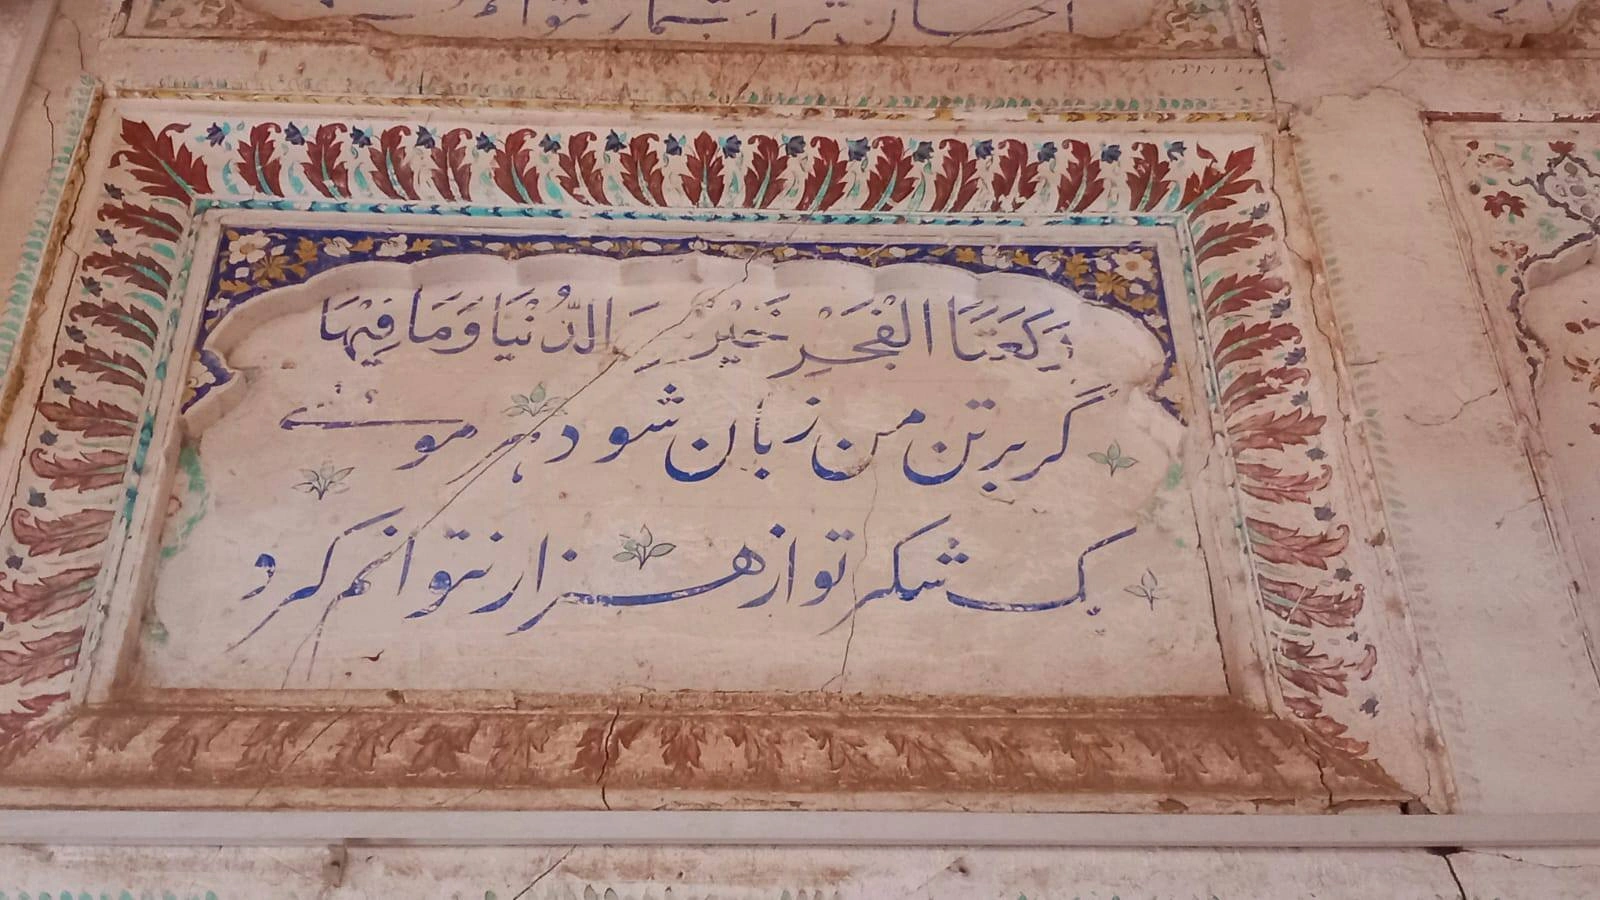 احسان ترا شمار نتوانم
رَكَعَتَا الْفَجْرِ خَيْرٌ مِنَ الدُّنْيَا وَمَا فِيْهَا
گر برتن من زبان شود ہر موئے
یک شکر تو از هزار نتوانم کرد